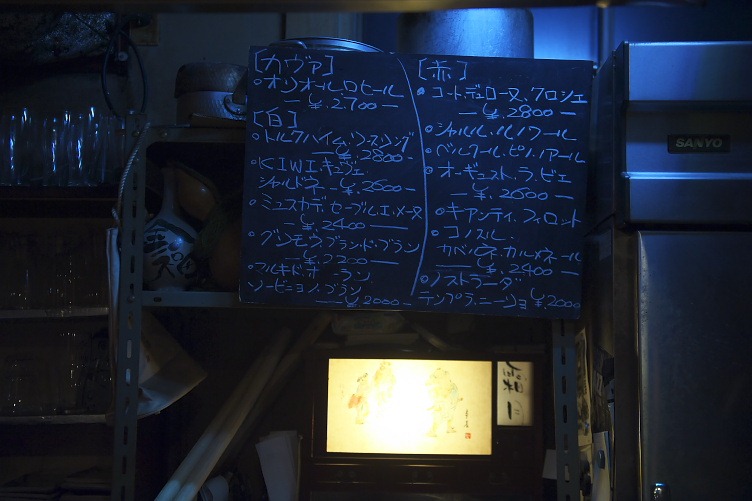 [カヴァ]
・オリオール.ロヒール
— ¥.2.700 —
[白]
・トルクハイム.リースリング
— ¥.2800 —
・KIWI.キュヴェ.
シャルドネ — ¥.2600 —
・ミュスカデ.セーブル.エ.メーヌ
— ¥.2400 —
・グシモウ ブラン.ド.ブラン
— ¥.2200 —
・マルキ.ド.オーラン
ソービニョン.ブラン
— ¥.2000 —
[赤]
・コート.デュ.ローヌ.クロシェ
— ¥.2800 —
・シャルル.ルノワール
・ベルクール.ピノ.ノアール
・オーギュスト.ラ.ビエ
— ¥.2600 —
・キアンティ.フィロット
・コノスル.
カベルネ.カルメネール
— ¥.2400 —
・ノストラーダ
テンプラニーリョ ¥.2000
SANYO